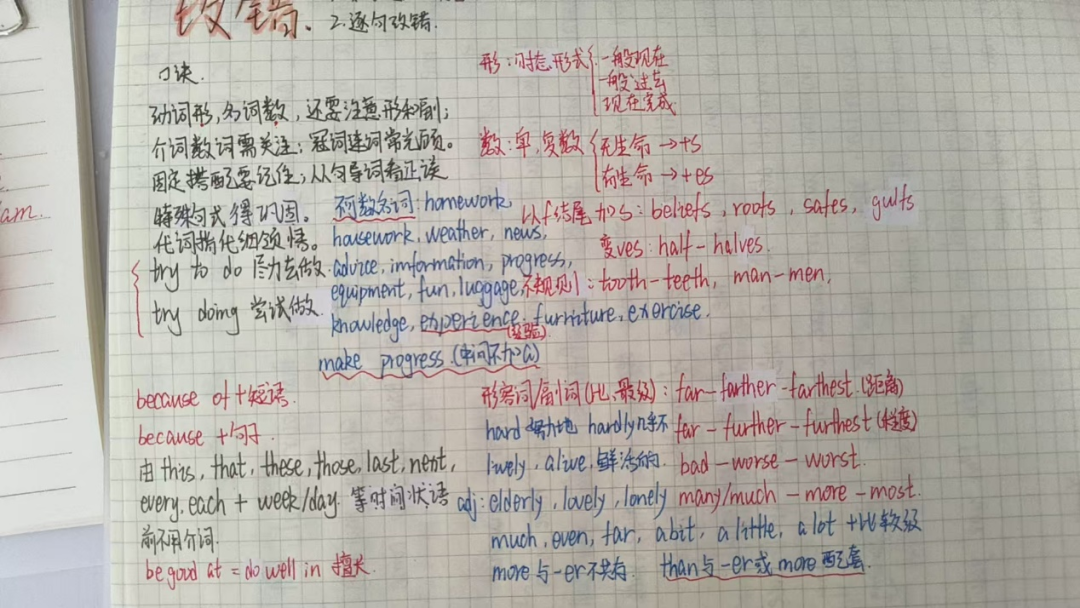 改错.
2.逐句改错.
口诀.
动词形,名词数,还要注意形和副;
介词数词需关注;冠词连词常光顾。
固定搭配要记住;从句导词看正误
特殊句式得巩固。
代词指代细领悟。
try to do 尽力去做.
try doing 尝试做.
形:时态形式 一般现在
一般过去
现在完成
数:单,复数 无生命→+s
有生命→+es
以f结尾加s: beliefs, roofs, safes, gulfs
变ves: half-halves.
不规则: tooth-teeth, man-men,
不可数名词: homework,
housework, weather, news,
advice, imformation, progress,
equipment, fun, luggage,
knowledge, experience, furniture, exercise.
(经验)
make progress.(中间不加a)
because of +短语.
because +句子.
由 this, that, these, those, last, next,
every, each + week/day. 等时间状语
前不用介词.
be good at = do well in 擅长
形容词/副词(比、最级): far-farther-farthest.(距离)
hard 努力地 hardly几乎不 far-further-furthest(程度)
lively, alive, 鲜活的. bad-worse-worst.
adj: elderly, lovely, lonely many/much-more-most.
much, even, far, a bit, a little, a lot +比较级
more与-er不共存. than与-er或more配套.
am.